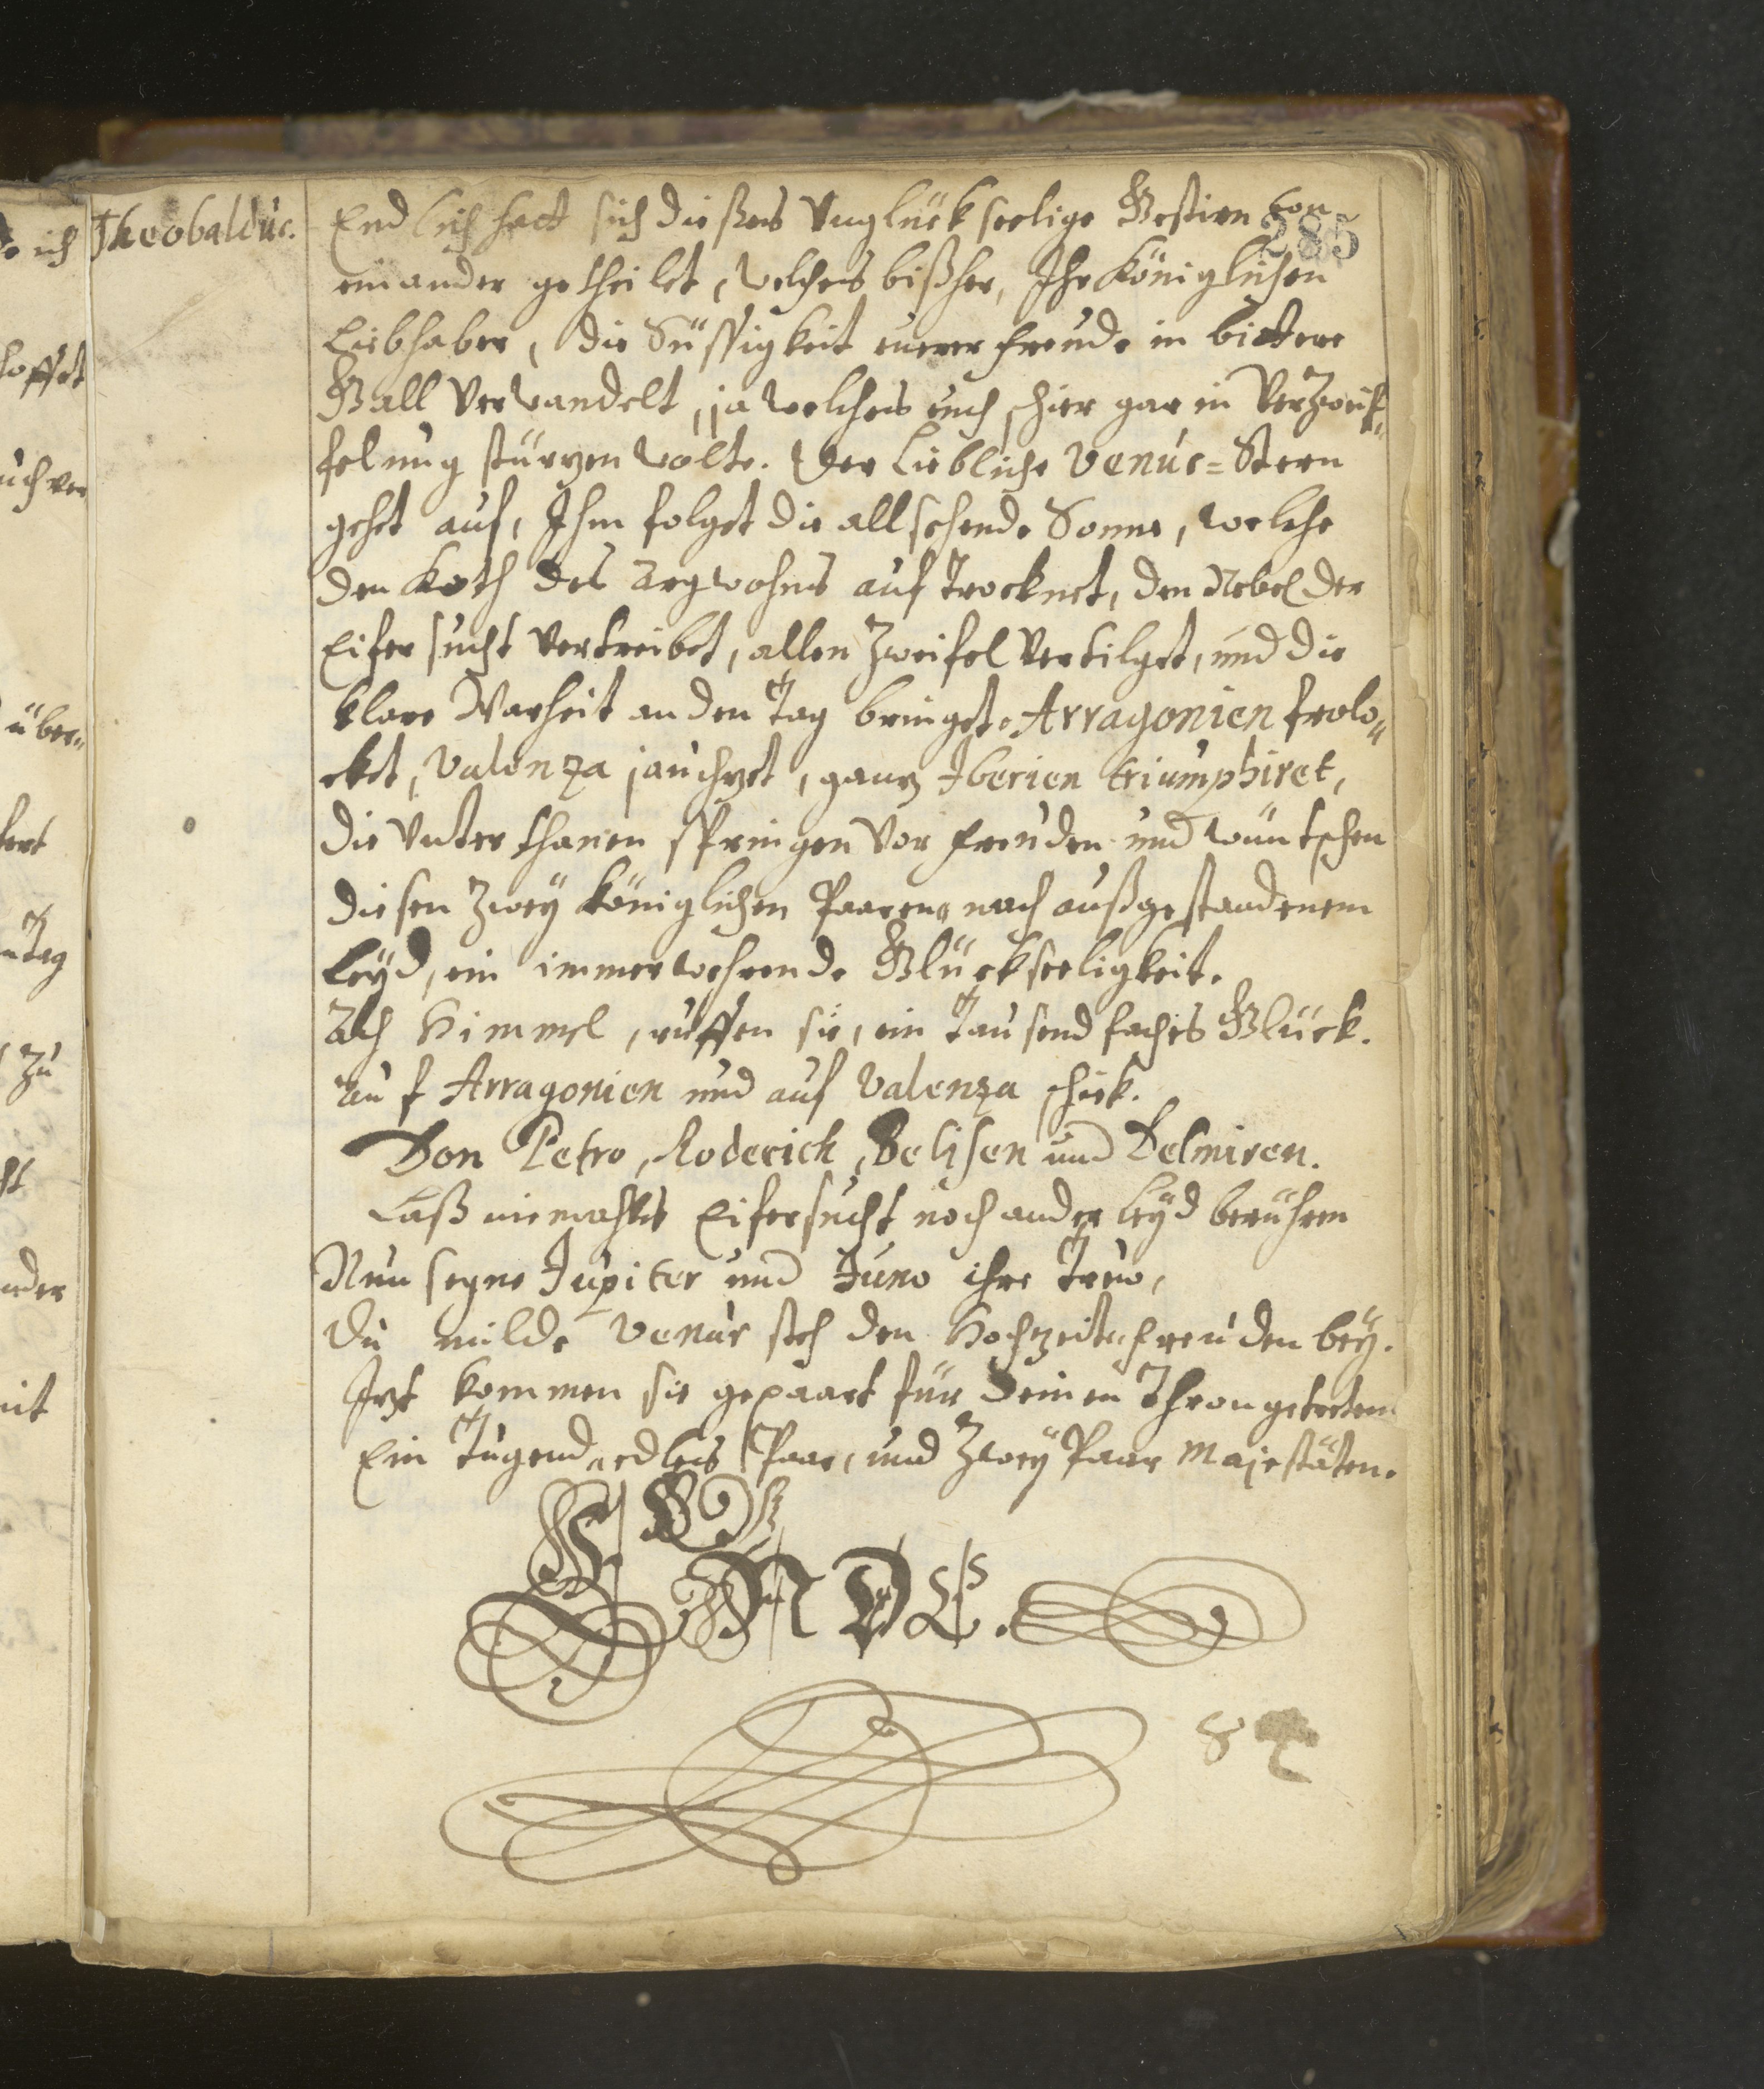 285
Theobaldus.
Endlich hatt sich dießes Unglückseelige Gestirn von
einander getheilet, welches bißher, Ihr Königlichen
Liebhaber, die Süssigkeit eurer Freude in bittere
Gall verwandelt, ja welches euch schier gar in Verzweif„
felung stürzen wolte. Der Liebliche Venus=Stern
gehet auf, Ihm folget die allsehende Sonne, welche
den Koth des Argwohns auf trocknet, den Nebel der
Eifersucht vertreibet, allen Zweifel vertilget, und die
klare Warheit an den Tag bringet. Arragonien frolo„
cket, Valenza jauchzet, ganz Iberien triumphiret,
die Unterthanen springen vor Freuden und wüntschen
diesen zwey königlichen Paaren nach außgestandenem
Leyd, ein immerwehrende Glückseeligkeit.
Ach Himmel, ruffen sie, ein Tausendfaches Glück.
Auf Arragonien und auf Valenza schick.
Don Petro, Roderich, Belisen und Delmiren.
Laß niemahls Eifersucht noch ander Leyd berühren
Nun segne Jupiter und Juno ihre Treu,
Du milde Venus steh den Hochzeit„freuden bey.
Jezt kommen sie gepaart für deinen Thron getreten
Ein Tugend„edles Paar, und Zwey Paar Majestäten.
ENDE.